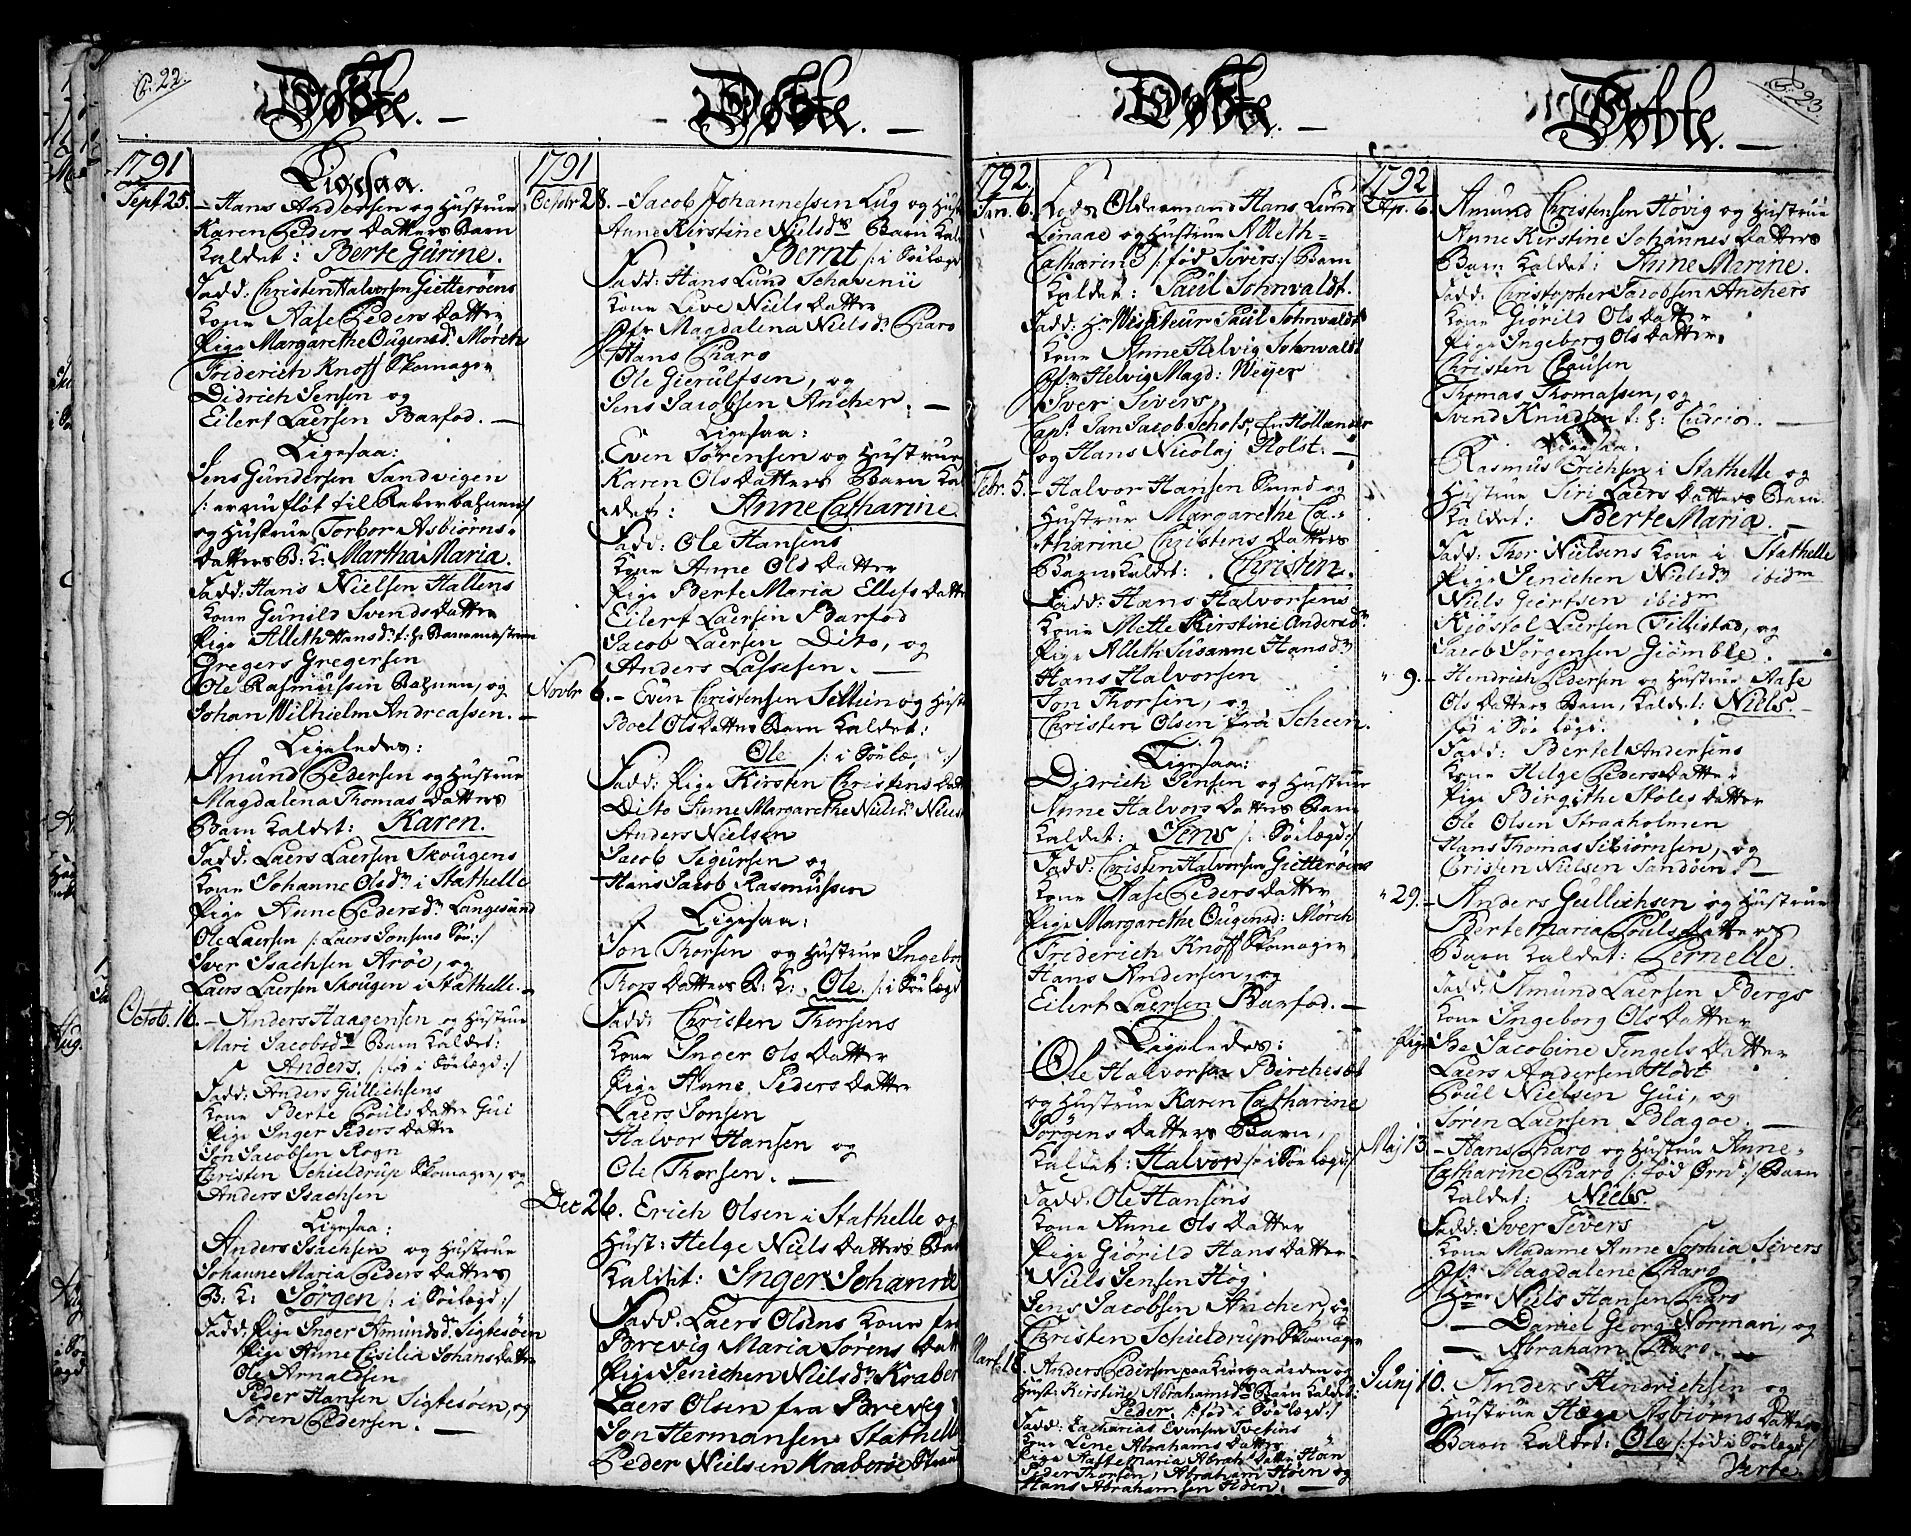 C: 22.
Døbte.
1791
Ligesaa.
Sept 25. - Hans Andersen og Hustrue
Karen Peders Datters Barn
Kaldet: Berte Gurine.
Fadd: Christen Halvorsen Gietterøens
Kone Aase Peders Datter
Pige Margarethe Ougensdr. Mørch
Friderich Knoff Skomager
Didrich Jensen og
Eilert Laersen Barfod. -
Ligesaa:
Jens Gundersen Sandvigen
og Hustrue Torbor Asbiørns-
Datters B: K: Martha Maria.
Fadd: Hans Nielsen Hallens
Kone Gunild Svends Datter
Pige Alleth Hansdr. f: h:
Gregers Gregersen
Ole Rasmussen og
Johan Wilhielm Andreassen. -
Ligeledes:
Amund Pedersen og Hustrue
Magdalena Thomas Datters
Barn Kaldet: Karen.
Fadd: Laers Laersen Skougens
Kone Johanne Olsdr. i Stathelle
Pige Anne Pedersdr. Langesund
Ole Laersen /: Laers Jonsens Søn:/
Iver Isachsen Aroe, og
Laers Laersen Skougen i Stathelle. -
Octob. 16. - Anders Haagensen og Hustrue
Mari Jacobsdr. Barn Kaldet:
Anders. /: fød i Sølægd:/
Fadd: Anders Gullichsens
Kone Berte Pouls Datter Gui
Pige Inger Peders Datter
Jon Jacobsen Rogn
Christen Schieldrup Skomager, og
Anders Isachsen
Ligesaa:
Anders Isachsen og Hustrue
Johanne Maria Peders Datters
B: K: Jørgen /: i Sølægd:/
Fadd: Pige Inger Amundsdr. Sigtesøen
Pige Anne Cisilia Johans Datter
Ole Arnaldsen
Peder Hansen Sigtesøen, og
Søren Pedersen. -
Døbte. -
1791
Octobr 28. - Jacob Johannessen Lug og Hust
Anne Kirstine Nielsdrs Barn Kal
Bernt /: i Sølægd
Fadd: Hans Lund Schavenii
Kone Live Niels Datter
Jfr Magdalena Nielsdr. Charo
Hans Charo
Ole Gierulfsen, og
Jens Jacobsen Ancher. -
Ligesaa:
Even Sørensen og Hustrue
Karen Ols Datters Barn Kal
det: Anne Catharine
Fadd: Ole Hansens
Kone Anne Ols Datter
Pige Berte Maria Ellefs Datte
Eilert Laersen Barfod
Jacob Laersen Dito, og
Anders Lassesen. -
Novbr 6. - Even Christensen Sillien og Hust
Boel Ols Datters Barn Kaldet:
Ole /: i Sølæ :/
Fadd: Pige Kirsten Christens Datt
Dito Anne Margarethe Nielsdr.
Anders Nielsen
Jacob Sigursen og
Hans Jacob Rasmussen
Ligesaa:
Jon Thorsen og Hustrue Ingebor
Thors Datters B: K: Ole. /: i Sølægd
Fadd: Christen Thorsens
Kone Inger Ols Datter
Pige Anne Peders Datter
Laers Jonsen
Halvor Hansen og
Ole Thorsen. -
Dec 26. Erich Olsen i Stathelle og
Hust: Helge Niels Datters Bar
Kaldet: Inger Johanne
Fadd: Laers Olsens Kone fra
Brevig Maria Sørens Datt
Pige Jenichen Nielsdr. Kraber
Laers Olsen fra Brevig
Jon Hermansen Stathell
Peder Nielsen Kraberøe
Døbte. -
1792.
Jan. 6. Olderemand Hans Lund
Linaae og Hustrue Alleth-
Catharine /: fød Sivers:/ Barn
Kaldet: Paul Johnvaldt.
Fadd: Hr Visiteur Paul Johnvaldts
Kone Anne Helvig Johnvaldt
Jfr Helvig Magd: Weyer
Iver Sivers,
Capt. Jan Jacob Schols, En Hollander
og Hans Nicolaj Holst. -
Febr. 5. - Halvor Hansen Smed og
Hustrue Margarethe Ca-
tharine Christens Datters
Barn Kaldet: Christen.
Fadd: Hans Halvorsens
Kone Mette Kirstine Andersdr
Pige Alleth Susanne Hansdr
Hans Halvorsen
Jon Thorsen, og
Christen Olsen fra Scheen.
Ligesaa:
Didrich Jensen og Hustrue
Anne Halvors Datters Barn
Kaldet: Jens /: Sølægd:/
Fadd: Christen Halvorsen Gietterøens
Kone Aase Peders Datter
Pige Margarethe Ougensd: Mørch
Friderich Knoff Skomager
Hans Andersen, og
Eilert Laersen Barfod. -
Ligeledes:
Ole Halvorsen Bircheset
og Hustrue Karen Catharine
Jørgens Datters Barn,
Kaldet: Halvor /: i Sølægd:/
Fadd: Ole Hansens
Kone Anne Ols Datter
Pige Giørild Hans Datter
Niels Jensen Høg
Jens Jacobsen Ancher, og
Christen Schieldrup Skomager
Marts 18. Anders Pedersen paa Kirregaarden og
Hust: Kirstine Abrahamsdrs Barn Kaldet:
Peder /: fød i Sølægd:/
Fadd: Zacharias Evensen Tvetens
Kone Lene Abrahams Datter
Pige Aasle Maria Abrah: Datter
Peder Thorsen, Abraham og
Hans Abrahamsen. -
Døbte. -
C: 23
1792
Apr. 6. Amund Christensen Høvig og Hustrue
Anne Kerstine Johannes Datters
Barn Kaldet: Anne Marine.
Fadd: Christopher Jacobsen Anchers
Kone Giørild Ols Datter
Pige Ingeborg Ols Datter
Christen Clausen
Thomas Thomassen, og
Svend Knudsen f: h: -
Ligesaa:
Rasmus Erichsen i Stathelle og
Hustrue Siri Laers Datters Barn
Kaldet: Berte Maria. -
Fadd: Thor Nielsens Kone i Stathelle
Pige Jenichen Nielsdr ibidm
Niels Giertsen ibidm
Kjøstol Laersen Fillistad, og
Jacob Jørgensen Giømble. -
" 9. - Hendrich Pedersen og Hustrue Aase
Ols Datters Barn, Kaldet: Niels.
fød i Sølægd:
Fadd: Bertel Andersens
Kone Helge Peders Datter
Pige Birgithe Stoles Datter
Ole Olsen Straaholmen
Hans Thomas Isbiørnsen, og
Christen Nielsen Sandøen. -
" 29. - Anders Gullichsen og Hustrue
Berte Maria Pouls Datters
Barn Kaldet: Pernelle.
Fadd: Amund Laersen Bergs
Kone Ingeborg Ols Datter
Pige Ide Jacobine Tengels Datter
Laers Andersen Høst
Poul Nielsen Gui, og
Søren Laersen Blagoe. -
Maj 13. - Hans Charo og Hustrue Anne-
Catharine Charo /: fød Ørn:/ Barn
Kaldet: Niels.
Fadd: Iver Sivers
Kone Madame Anne Sophia Sivers
Jfr. Magdalene Charo
Hrr Niels Hansen Charo
- Daniel Georg Norman, og
- Abraham Charo. -
Junj 10. - Anders Hendrichsen og
Hustrue Hæge Asbiørns Datters
Barn Kaldet: Ole /: fød i Sølægd:/
Verte.